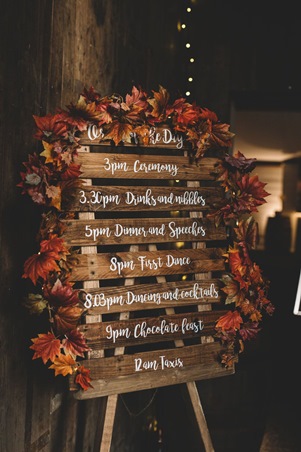 the Day
3pm Ceremony
3.30pm Drinks and nibbles
5pm Dinner and Speeches
8pm First Dance
8.03pm Dancing and cocktails
9pm Chocolate feast
12am Taxis